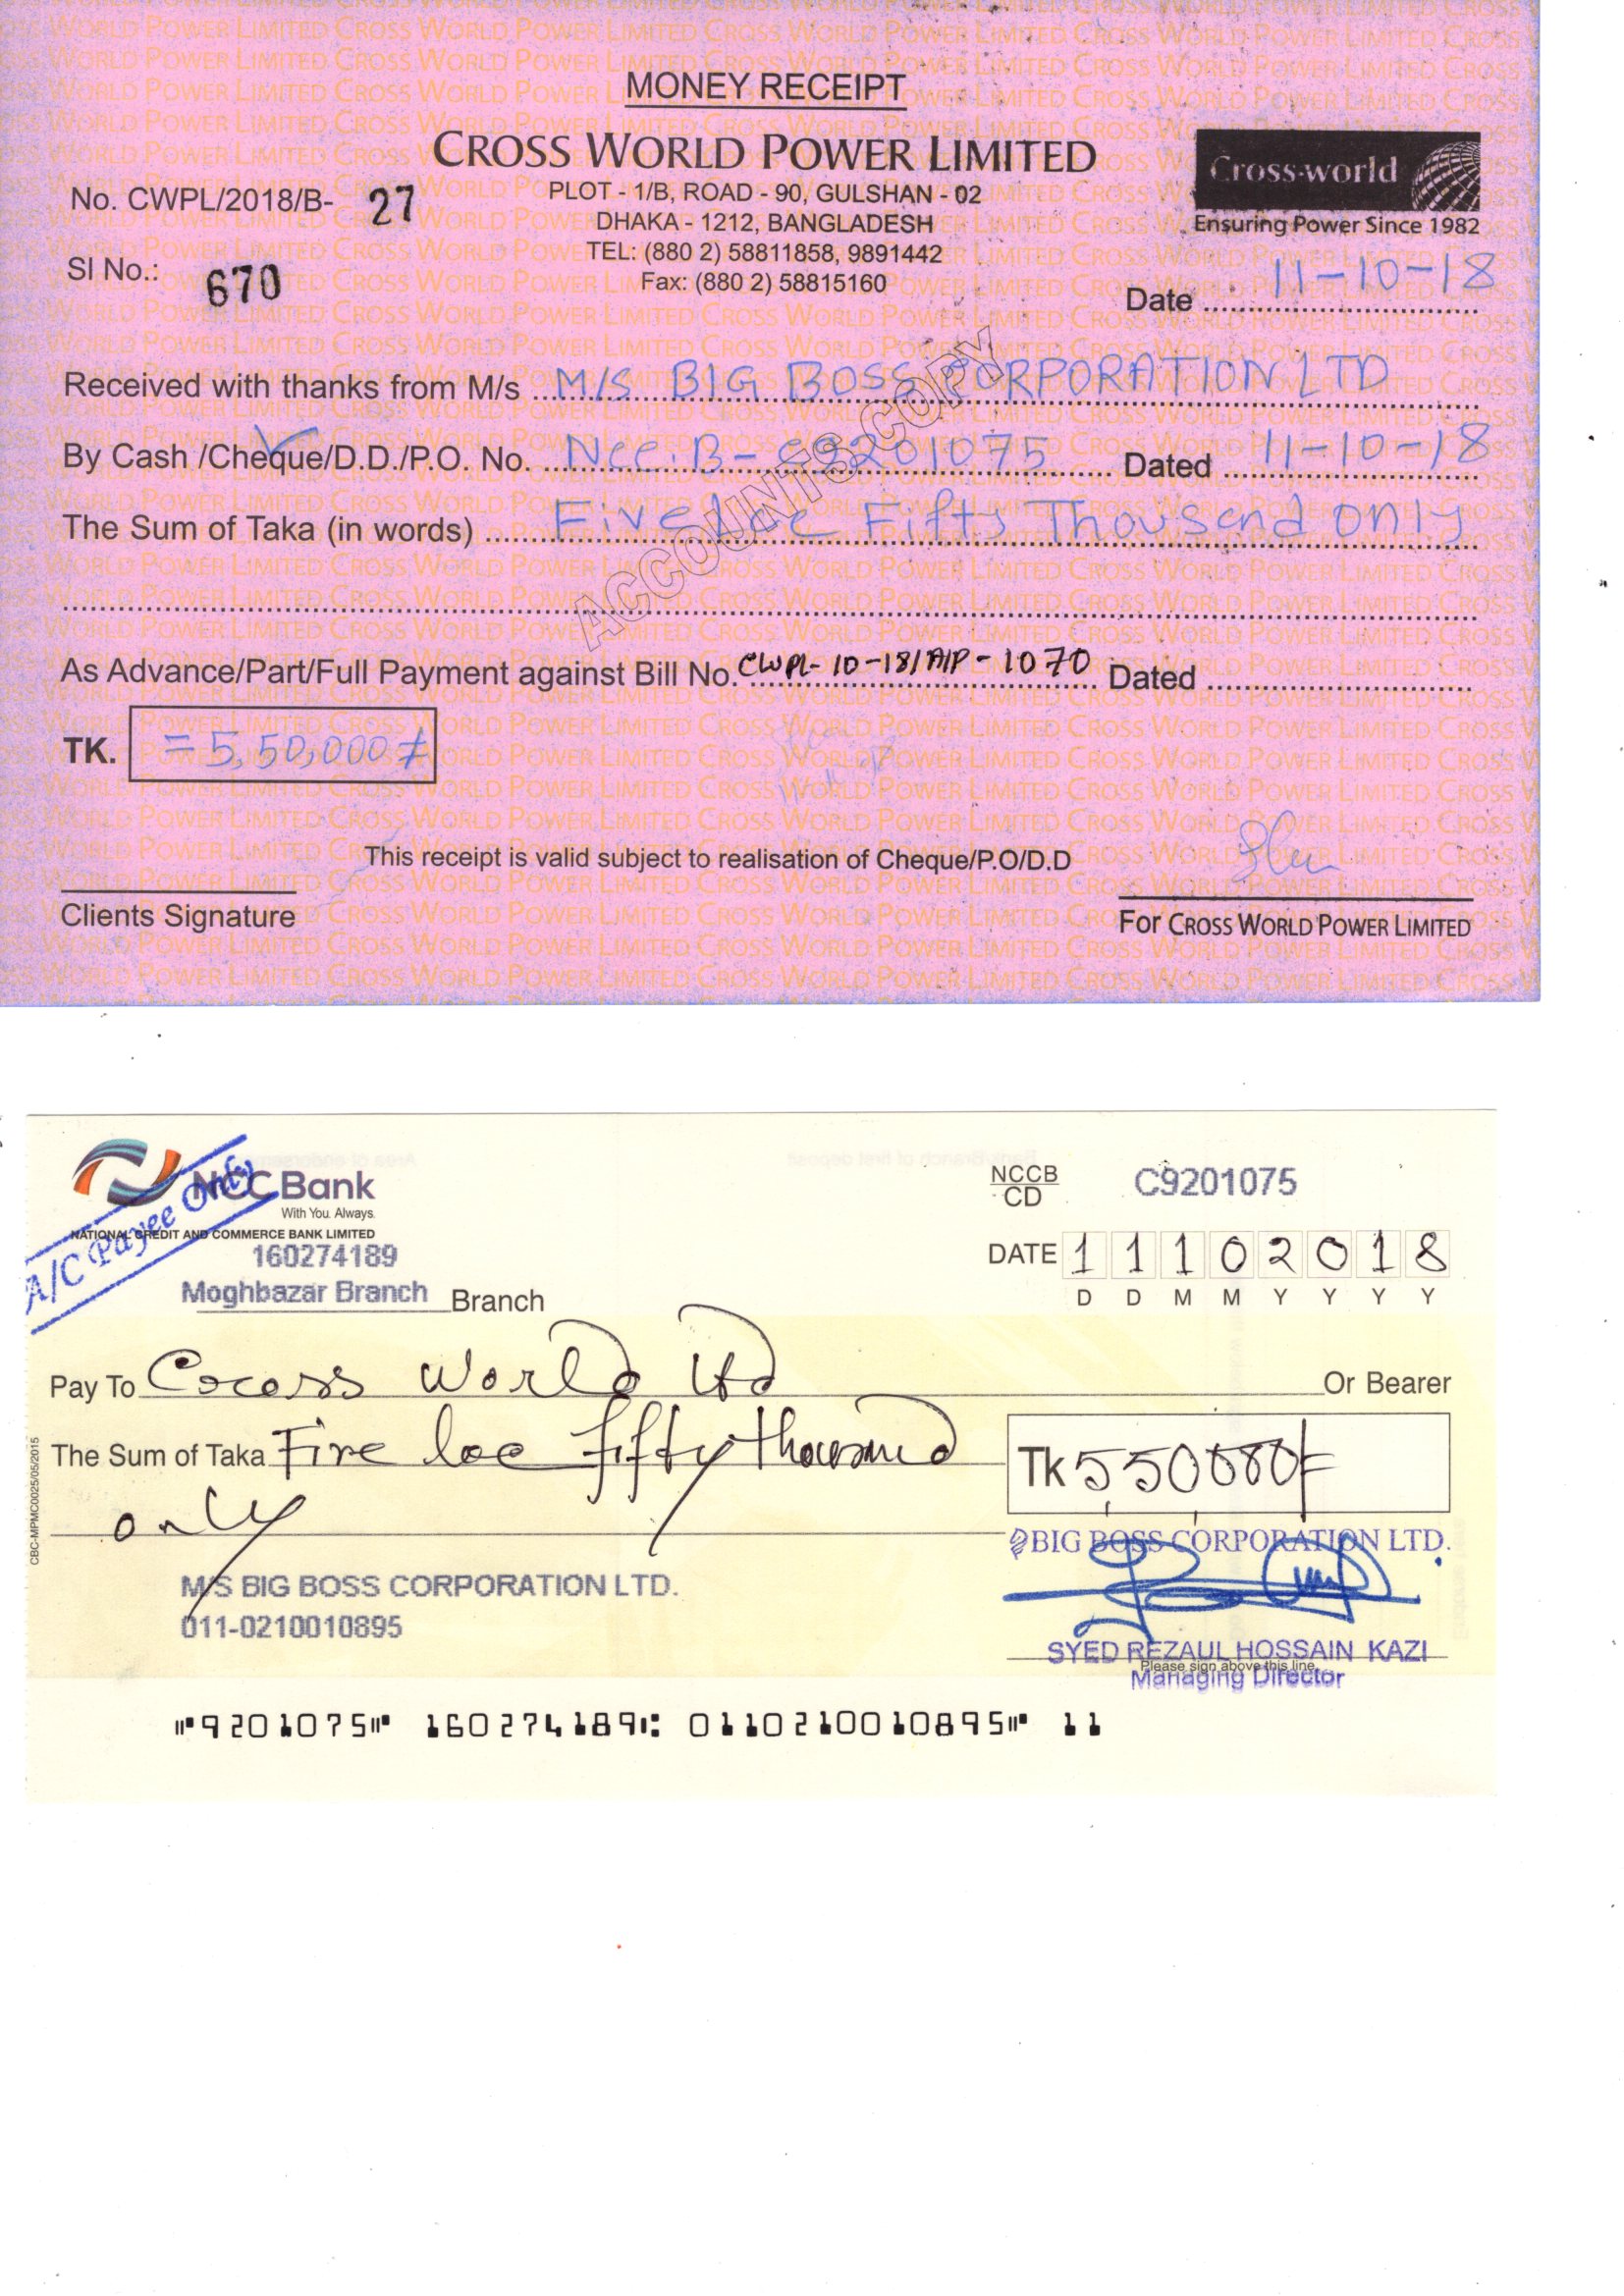 MONEY RECEIPT
CROSS WORLD POWER LIMITED
Cross-world
Ensuring Power Since 1982
No. CWPL/2018/B- 27
PLOT - 1/B, ROAD - 90, GULSHAN - 02
DHAKA - 1212, BANGLADESH
TEL: (880 2) 58811858, 9891442
Fax: (880 2) 58815160
Sl No.: 670
Date 11-10-18
Received with thanks from M/s M/S BIG BOSS CORPORATION LTD
By Cash /Cheque/D.D./P.O. No. NCC.B- C9201075 Dated 11-10-18
The Sum of Taka (in words) Five lac Fifty Thousand only
ACCOUNTS COPY
As Advance/Part/Full Payment against Bill No. CWPL-10-18/AIP-1070 Dated
TK. =5,50,000/=
This receipt is valid subject to realisation of Cheque/P.O/D.D
Clients Signature
For CROSS WORLD POWER LIMITED
A/C Payee Only
NCC Bank
With You. Always.
NATIONAL CREDIT AND COMMERCE BANK LIMITED
160274189
Moghbazar Branch Branch
NCCB
CD
C9201075
DATE 11102018
D D M M Y Y Y Y
Pay To Cocoss World Ltd Or Bearer
The Sum of Taka Five lac fifty thousand
only
Tk 550000/=
BIG BOSS CORPORATION LTD.
M/S BIG BOSS CORPORATION LTD.
011-0210010895
SYED REZAUL HOSSAIN KAZI
Please sign above this line
Managing Director
CBC-MPMC0025/05/2015
⑈9201075⑈ 160274189⑆ 0110210010895⑈ 11